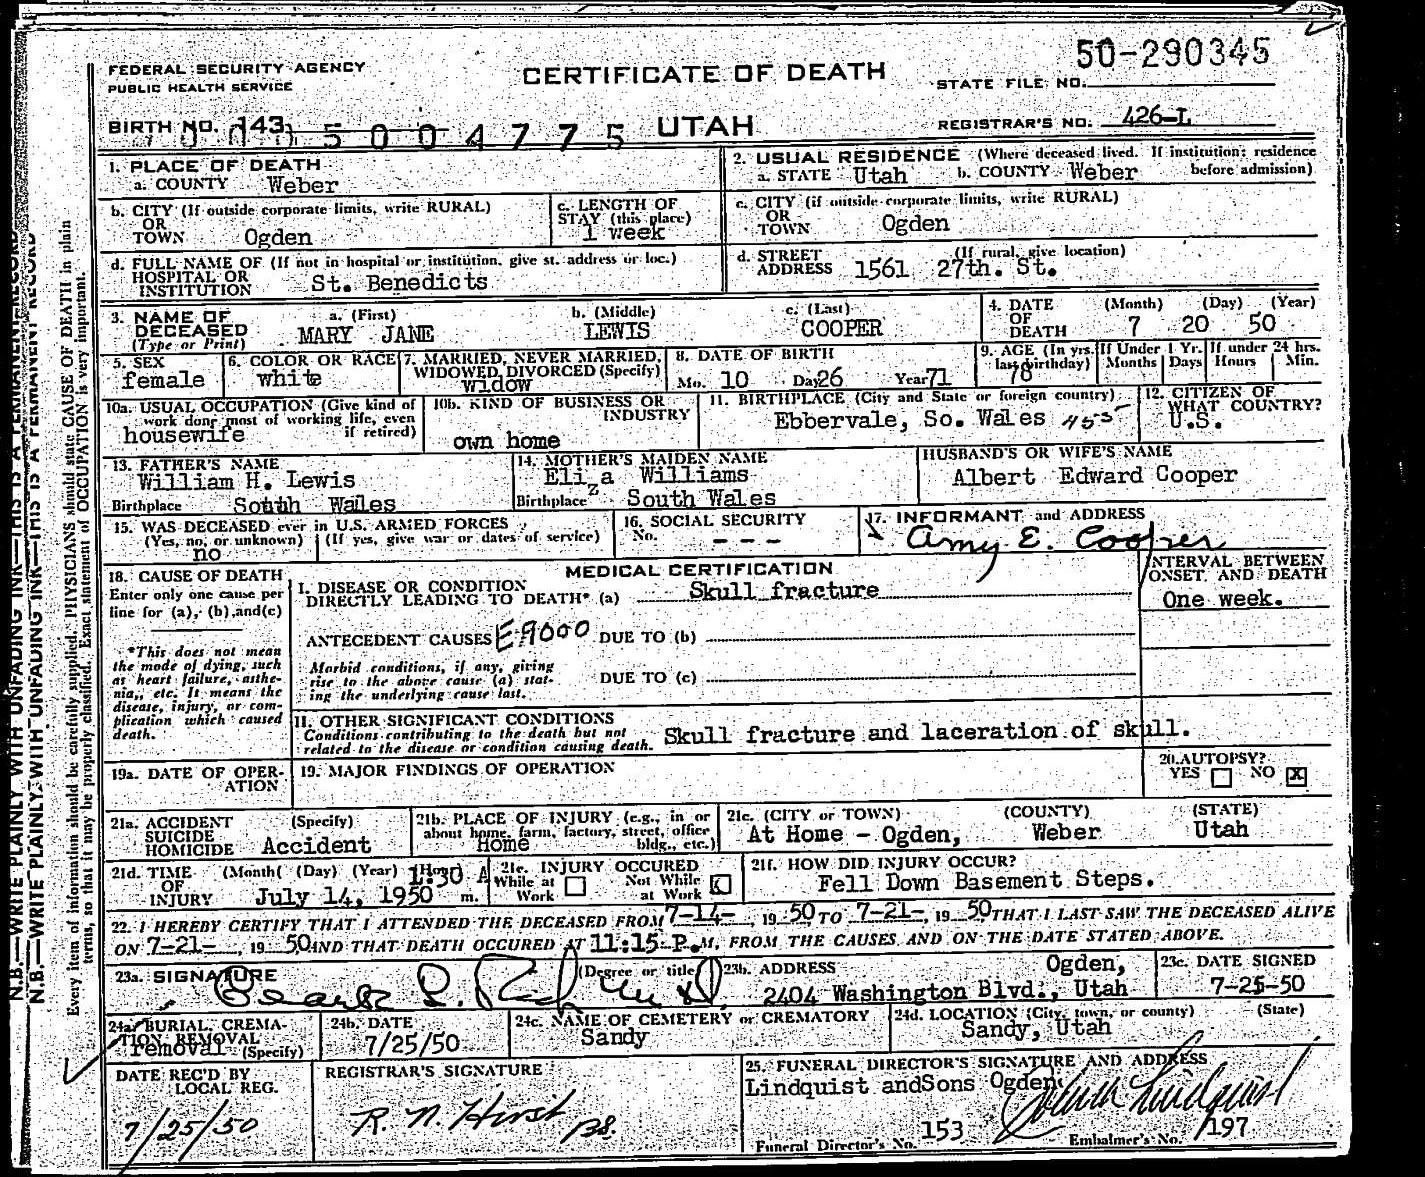 50-290345
FEDERAL SECURITY AGENCY
PUBLIC HEALTH SERVICE
CERTIFICATE OF DEATH
STATE FILE NO.
BIRTH NO. 143 5004775 UTAH
REGISTRAR'S NO. 426-L
1. PLACE OF DEATH
a. COUNTY Weber
2. USUAL RESIDENCE (Where deceased lived. If institution: residence before admission)
a. STATE Utah b. COUNTY Weber
b. CITY (If outside corporate limits, write RURAL)
OR
TOWN Ogden
c. LENGTH OF
STAY (this place)
1 week
c. CITY (if outside corporate limits, write RURAL)
OR
TOWN Ogden
d. FULL NAME OF (If not in hospital or institution, give st. address or loc.)
HOSPITAL OR
INSTITUTION St. Benedicts
d. STREET (If rural, give location)
ADDRESS 1561 27th. St.
3. NAME OF DECEASED (Type or Print)
a. (First) b. (Middle) c. (Last)
MARY JANE LEWIS COOPER
4. DATE OF DEATH (Month) (Day) (Year)
7 20 50
5. SEX
female
6. COLOR OR RACE
white
7. MARRIED, NEVER MARRIED,
WIDOWED, DIVORCED (Specify)
widow
8. DATE OF BIRTH
Mo. 10 Day 26 Year 71
9. AGE (In yrs. last birthday)
78
If Under 1 Yr. Months Days
If under 24 hrs. Hours Min.
10a. USUAL OCCUPATION (Give kind of
work done most of working life, even
if retired)
housewife
10b. KIND OF BUSINESS OR
INDUSTRY
own home
11. BIRTHPLACE (City and State or foreign country)
Ebbervale, So. Wales
12. CITIZEN OF
WHAT COUNTRY?
U.S.
13. FATHER'S NAME
William H. Lewis
Birthplace South Wales
14. MOTHER'S MAIDEN NAME
Eliza Williams
Birthplace South Wales
HUSBAND'S OR WIFE'S NAME
Albert Edward Cooper
15. WAS DECEASED ever in U.S. ARMED FORCES
(Yes, no, or unknown) (If yes, give war or dates of service)
no
16. SOCIAL SECURITY
No. - - -
17. INFORMANT and ADDRESS
Amy E. Cooper
18. CAUSE OF DEATH
Enter only one cause per
line for (a), (b), and (c)
*This does not mean
the mode of dying, such
as heart failure, asthe-
nia, etc. It means the
disease, injury, or com-
plication which caused
death.
MEDICAL CERTIFICATION
INTERVAL BETWEEN
ONSET AND DEATH
I. DISEASE OR CONDITION
DIRECTLY LEADING TO DEATH* (a) Skull fracture
One week.
ANTECEDENT CAUSES E9000 DUE TO (b)
Morbid conditions, if any, giving
rise to the above cause (a) stat-
ing the underlying cause last.
DUE TO (c)
II. OTHER SIGNIFICANT CONDITIONS
Conditions contributing to the death but not
related to the disease or condition causing death.
Skull fracture and laceration of skull.
19a. DATE OF OPER-
ATION
19. MAJOR FINDINGS OF OPERATION
20. AUTOPSY?
YES NO X
21a. ACCIDENT (Specify)
SUICIDE
HOMICIDE Accident
21b. PLACE OF INJURY (e.g., in or
about home, farm, factory, street, office
bldg., etc.)
Home
21c. (CITY or TOWN) (COUNTY) (STATE)
At Home - Ogden, Weber Utah
21d. TIME (Month) (Day) (Year) (Hour)
OF
INJURY July 14, 1950 1:30 A m.
21e. INJURY OCCURED
While at Work Not While at Work
21f. HOW DID INJURY OCCUR?
Fell Down Basement Steps.
22. I HEREBY CERTIFY THAT I ATTENDED THE DECEASED FROM 7-14-, 1950 TO 7-21-, 1950 THAT I LAST SAW THE DECEASED ALIVE
ON 7-21-, 1950, AND THAT DEATH OCCURED AT 11:15 P.M, FROM THE CAUSES AND ON THE DATE STATED ABOVE.
23a. SIGNATURE
(Degree or title)
23b. ADDRESS Ogden,
2404 Washington Blvd., Utah
23c. DATE SIGNED
7-25-50
24a. BURIAL, CREMA-
TION REMOVAL
removal (Specify)
24b. DATE
7/25/50
24c. NAME OF CEMETERY or CREMATORY
Sandy
24d. LOCATION (City, town, or county) (State)
Sandy, Utah
DATE REC'D BY
LOCAL REG.
7/25/50
REGISTRAR'S SIGNATURE
R. N. Hirst
25. FUNERAL DIRECTOR'S SIGNATURE AND ADDRESS
Lindquist and Sons Ogden
John Lindquist
Funeral Director's No. 153
Embalmer's No. 197
N.B.—WRITE PLAINLY, WITH UNFADING INK—THIS IS A PERMANENT RECORD
Every item of information should be carefully supplied. PHYSICIANS should state CAUSE OF DEATH in plain
terms, so that it may be properly classified. Exact statement of OCCUPATION is very important.